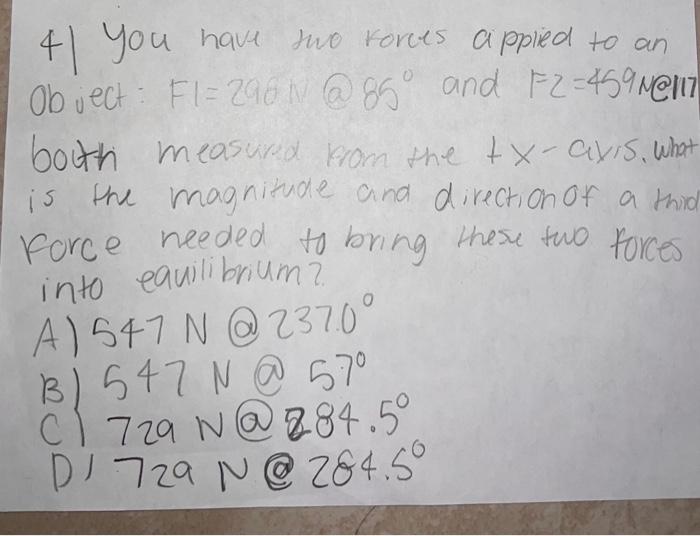 4) You have two Forces appied to an
Object: F1= 296 N @ 85° and F2=459N@117
both measured from the +x-axis. What
is the magnitude and direction of a third
Force needed to bring these two forces
into equilibrium?
A) 547 N @ 237.0°
B) 547 N @ 57°
C) 729 N @ 284.5°
D) 729 N @ 264.5°